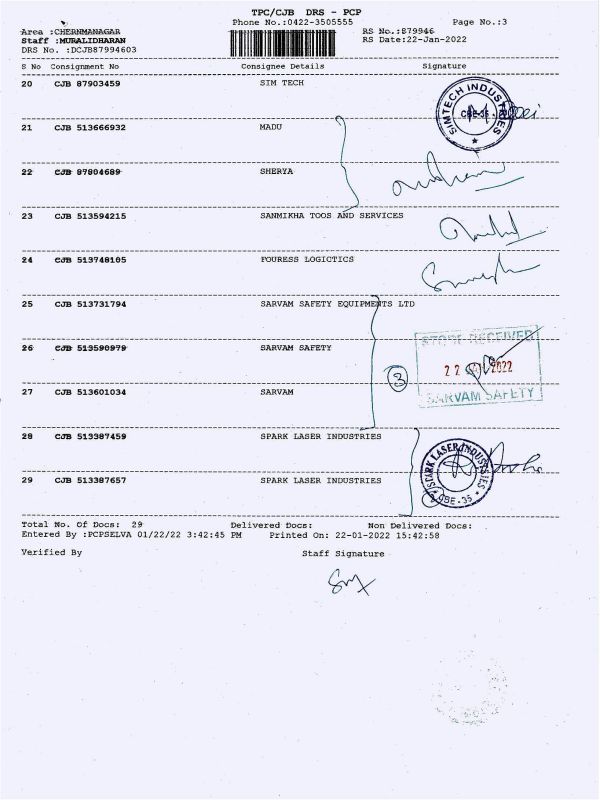 TPC/CJB DRS - PCP
Phone No.:0422-3505555 Page No.:3
Area :CHERNMANAGAR RS No.:879946
Staff :MURALIDHARAN RS Date:22-Jan-2022
DRS No. :DCJB87994603
S No Consignment No Consignee Details Signature
20 CJB 87903459 SIM TECH
SIMTECH INDUSTRIES
CBE-35
21 CJB 513666932 MADU
22 CJB 87804689 SHERYA
23 CJB 513594215 SANMIKHA TOOS AND SERVICES
24 CJB 513748105 FOURESS LOGICTICS
25 CJB 513731794 SARVAM SAFETY EQUIPMENTS LTD
26 CJB 513590979 SARVAM SAFETY
STORE RECEIVED
22 2022
SARVAM SAFETY
3
27 CJB 513601034 SARVAM
28 CJB 513387459 SPARK LASER INDUSTRIES
SPARK LASER INDUSTRIES
CBE-35
29 CJB 513387657 SPARK LASER INDUSTRIES
Total No. Of Docs: 29 Delivered Docs: Non Delivered Docs:
Entered By :PCPSELVA 01/22/22 3:42:45 PM Printed On: 22-01-2022 15:42:58
Verified By Staff Signature